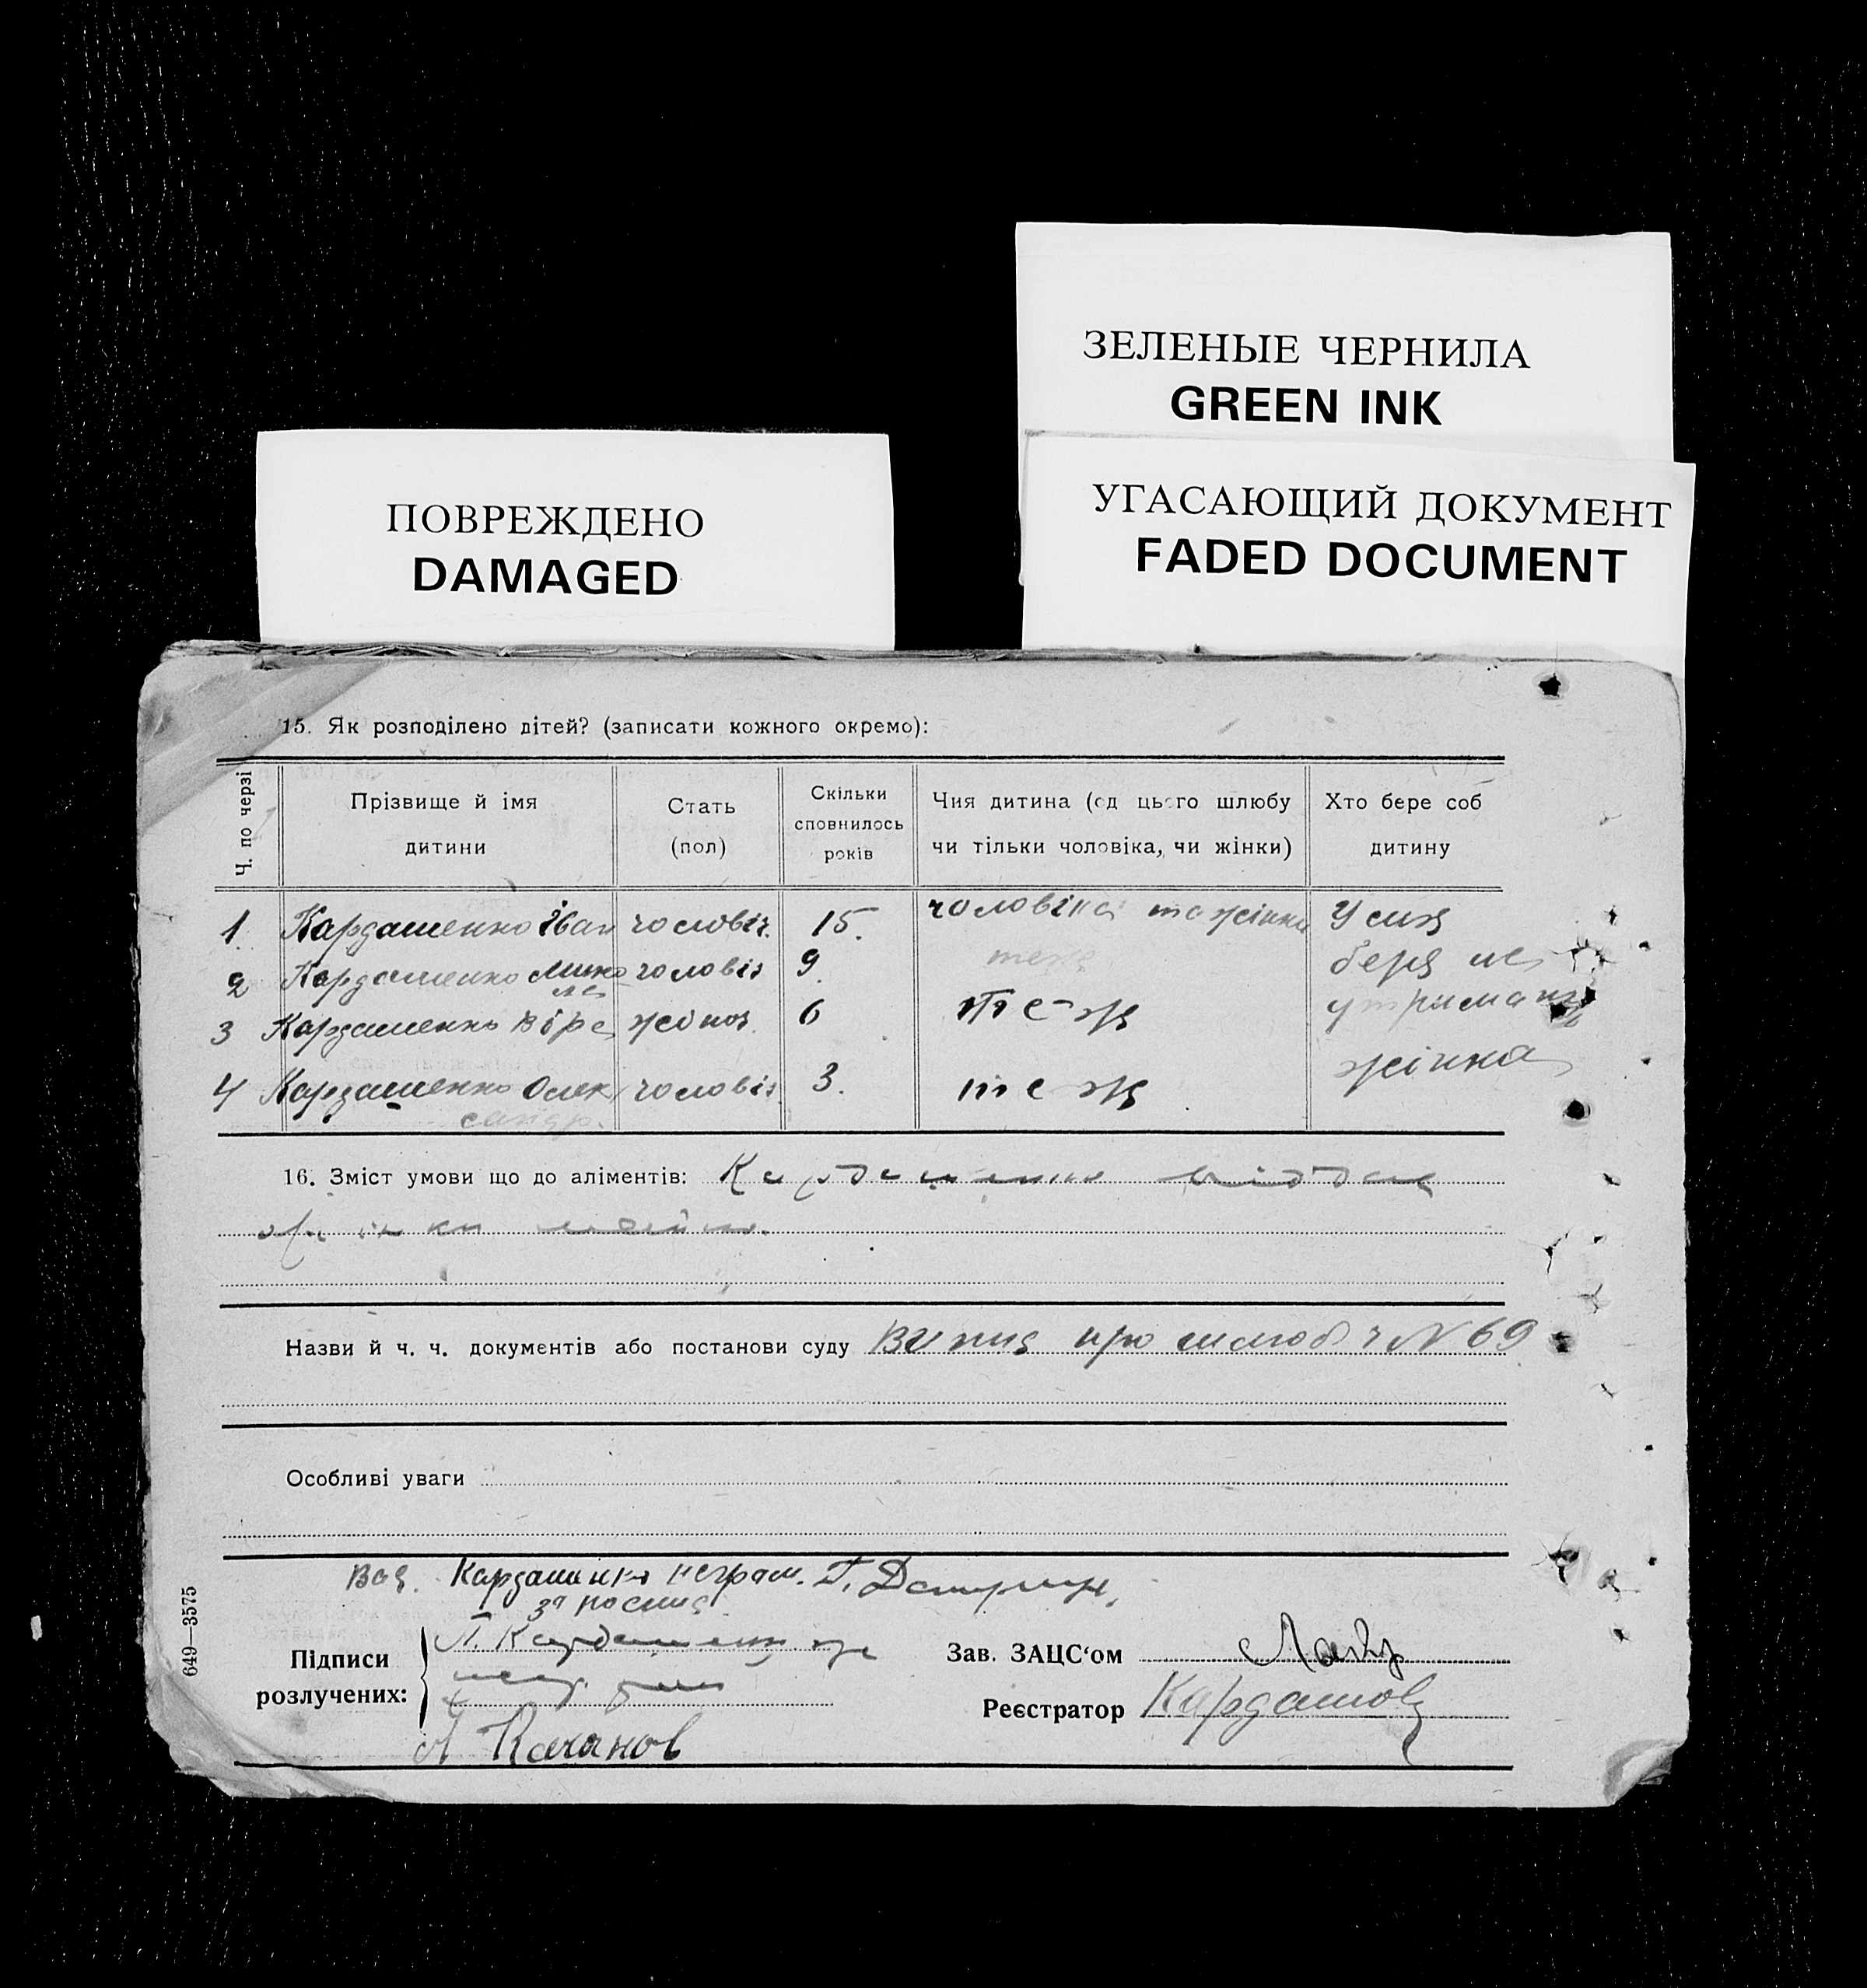 ЗЕЛЕНЫЕ ЧЕРНИЛА
GREEN INK
УГАСАЮЩИЙ ДОКУМЕНТ
FADED DOCUMENT
ПОВРЕЖДЕНО
DAMAGED
15. Як розподілено дітей? (записати кожного окремо):
Ч. по черзі
Прізвище й імя дитини
Стать (пол)
Скільки сповнилось років
Чия дитина (од цього шлюбу чи тільки чоловіка, чи жінки)
Хто бере соб дитину
1. Кардашенко Іван чоловіч. 15. чоловіка та жінки Усих
2 Кардашенко чоловіч 9. теж бере на
3 Кардашенко Віра 6 теж утриманя
4 Кардашенко Олександр. чоловіч 3. теж жінка
16. Зміст умови що до аліментів: Кардашенко
Назви й ч. ч. документів або постанови суду Випис про шлюб ч N 69
Особливі уваги
Кардашенко неграм.
за
Підписи розлучених:
Кардашенко
Качанов
Зав. ЗАЦС‘ом
Реєстратор
649—3575